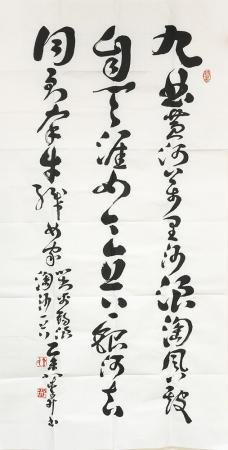 九曲黄河万里沙浪淘风簸
自天涯如今直上银河去
同到牵牛织女家
浪淘沙